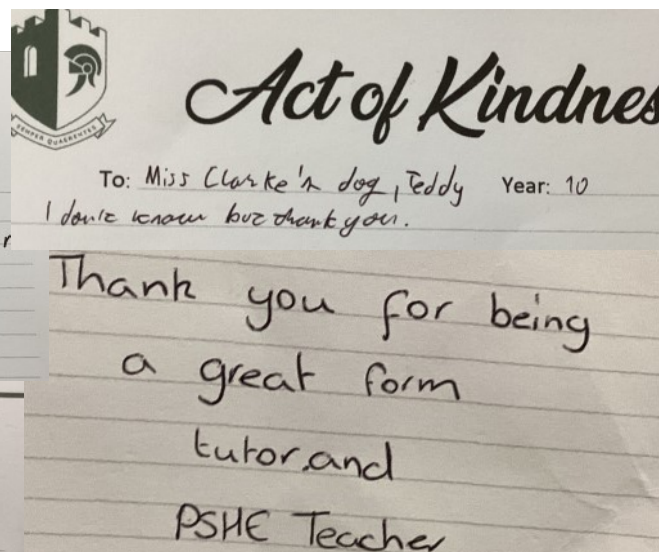 Act of Kindnes
SEMPER QUAERENTES
To: Miss Clarke's dog, Teddy Year: 10
I don't know but thank you.
Thank you for being
a great form
tutor and
PSHE Teacher